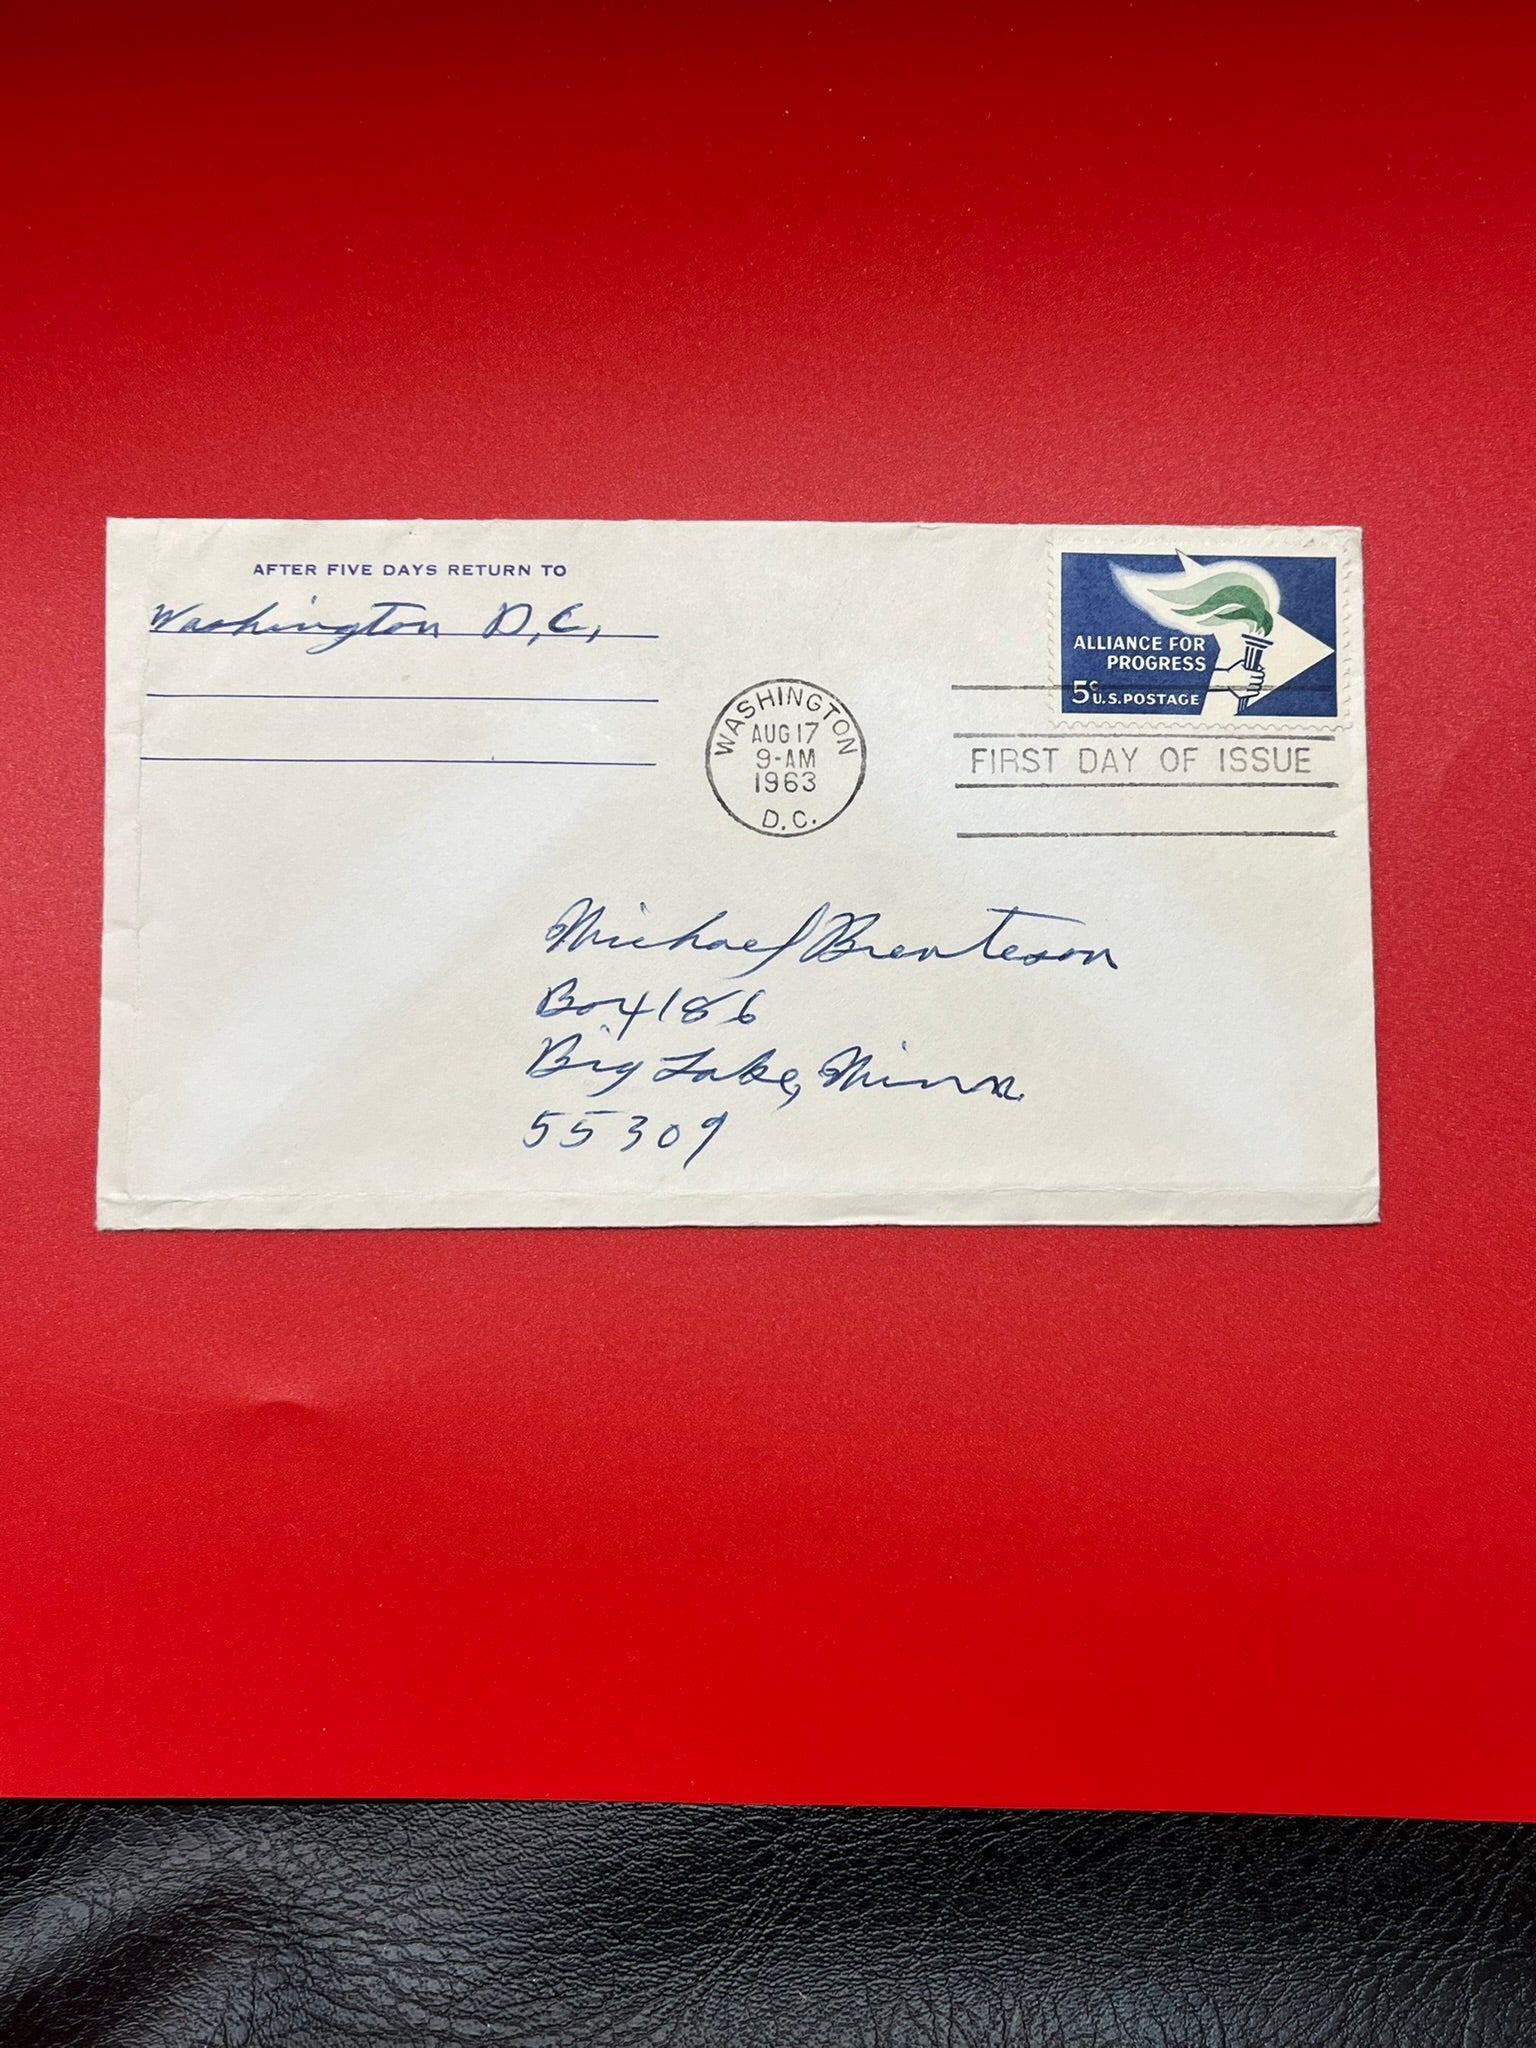 AFTER FIVE DAYS RETURN TO
Washington D.C.,
ALLIANCE FOR
PROGRESS
5c U.S. POSTAGE
WASHINGTON
AUG 17
9-AM
1963
D.C.
FIRST DAY OF ISSUE
Michael Brenteson
Box 186
Big Lake, Minn.
55309